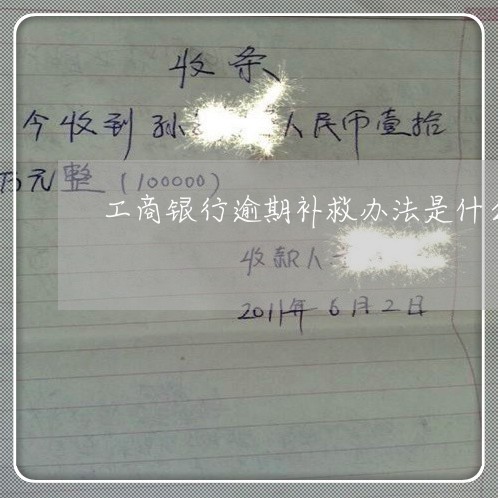 收条
今收到孙 人民币壹拾
万元整(100000)
工商银行逾期补救办法是什
收款人
2011年6月2日